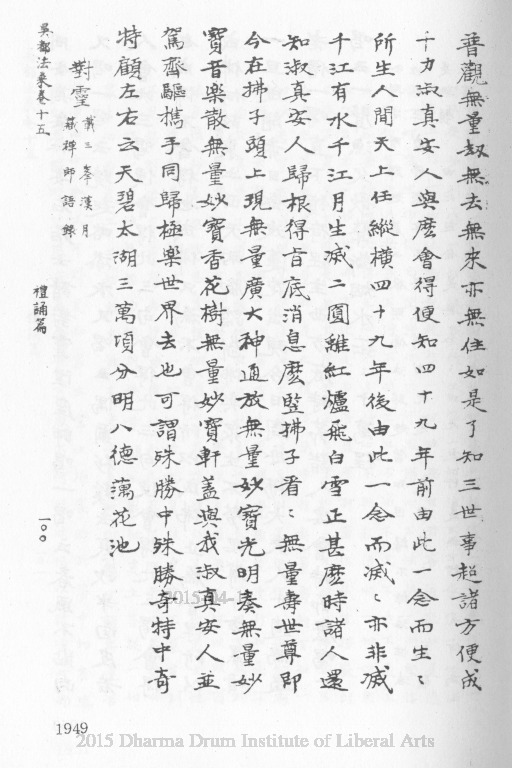 普觀無量劫無去無來亦無住如是了知三世事超諸方便成
十力淑真安人與麽會得便知四十九年前由此一念而生〻
所生人間天上任縱橫四十九年後由此一念而滅〻亦非滅
千江有水千江月生滅二圓離紅爐飛白雪正甚麽時諸人還
知淑真安人歸根得旨底消息麽竪拂子看〻無量壽世尊即
今在拂子頭上現無量廣大神通放無量妙寶光明奏無量妙
寶音樂散無量妙寶香花樹無量妙寶軒蓋與我淑真安人並
駕齊驅攜手同歸極樂世界去也可謂殊勝中殊勝奇特中奇
特顧左右云天碧太湖三萬頃分明八德藕花池
對靈
載三峯漢月
藏禪師語錄
吳都法乘卷十五
禮誦篇
一〇〇
1949
2015 Dharma Drum Institute of Liberal Arts